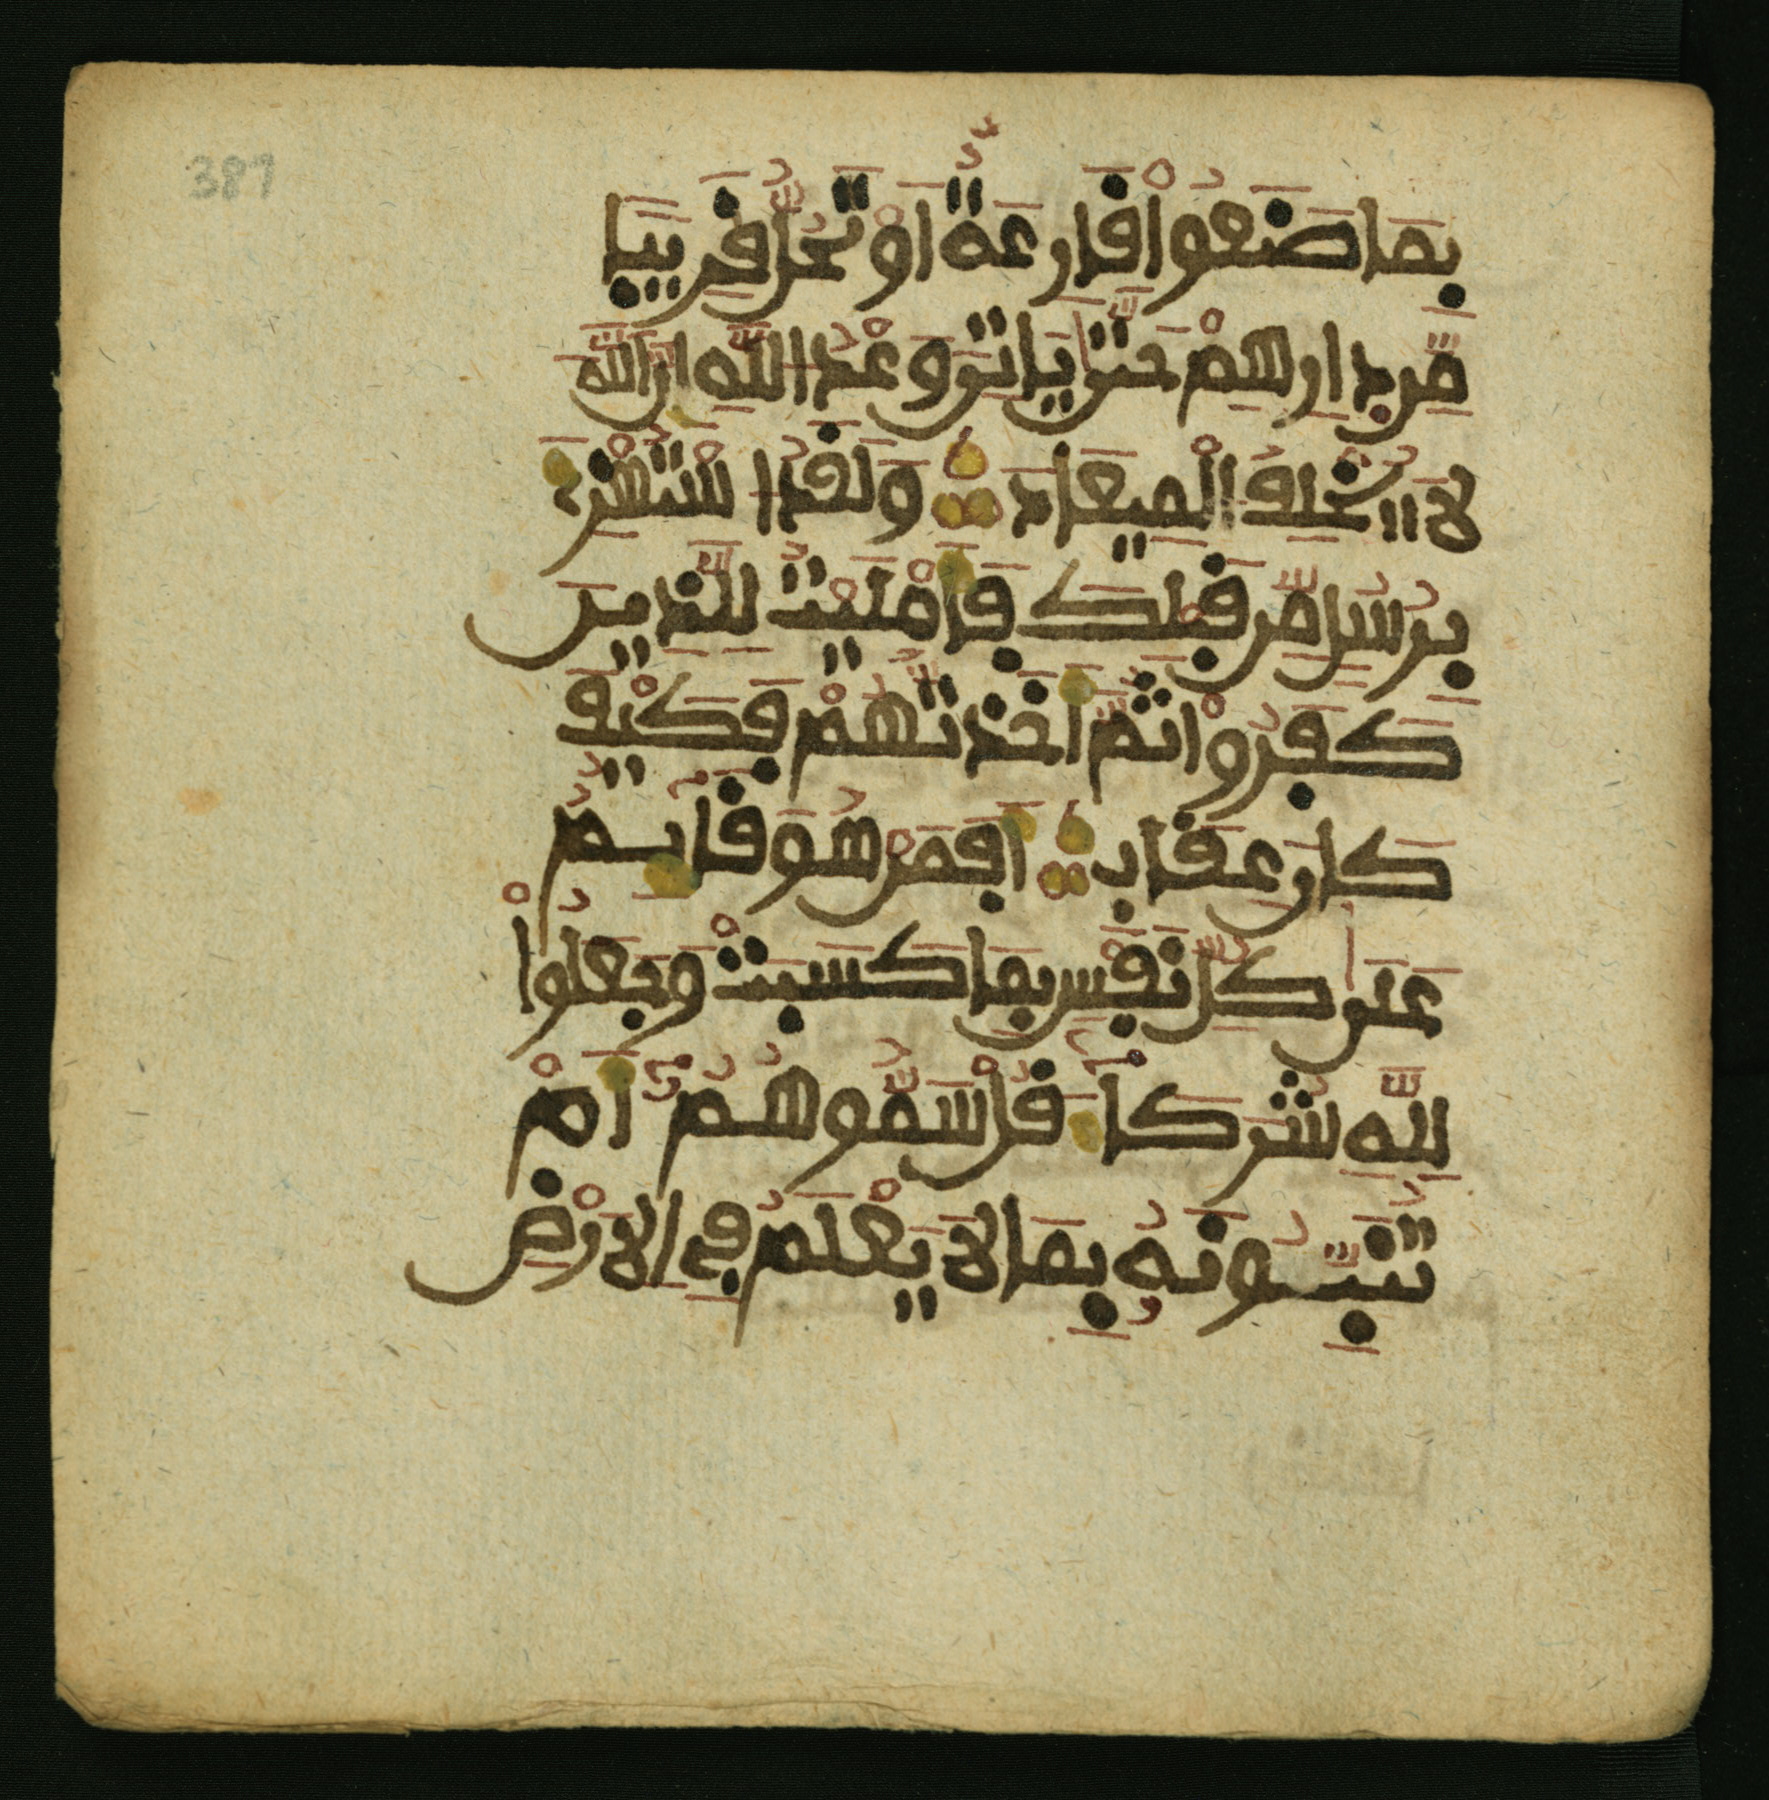 389
بِمَا صَنَعُواْ قَارِعَةٌ اَوْ تَحُلُّ قَرِيبٗا
مِّن دِارِهِمْ حَتَّىٰ يَاتِىَ وَعْدُ اللَّهِ إِنَّ اللَّهَ
لَا يُخْلِفُ الْمِيعَادَ وَلَقَدُ اسْتُهْزِءَ
بِرُسُلٖ مِّن قَبْلِكَ فَأَمْلَيْتُ لِلَّذِينَ
كَفَرُواْ ثُمَّ أَخَذتُّهُمْ فَكَيْفَ
كَانَ عِقَابِ أَفَمَنْ هُوَ قَآئِمٌ
عَلَىٰ كُلِّ نَفْسِ بِمَا كَسَبَتْ وَجَعَلُواْ
لِلَّهِ شُرَكَآءَ قُلْ سَمُّوهُمُۥٓ أَمْ
تُنَبِّـُٔونَهُۥ بِمَا لَا يَعْلَمُ فِي الَارْضِ